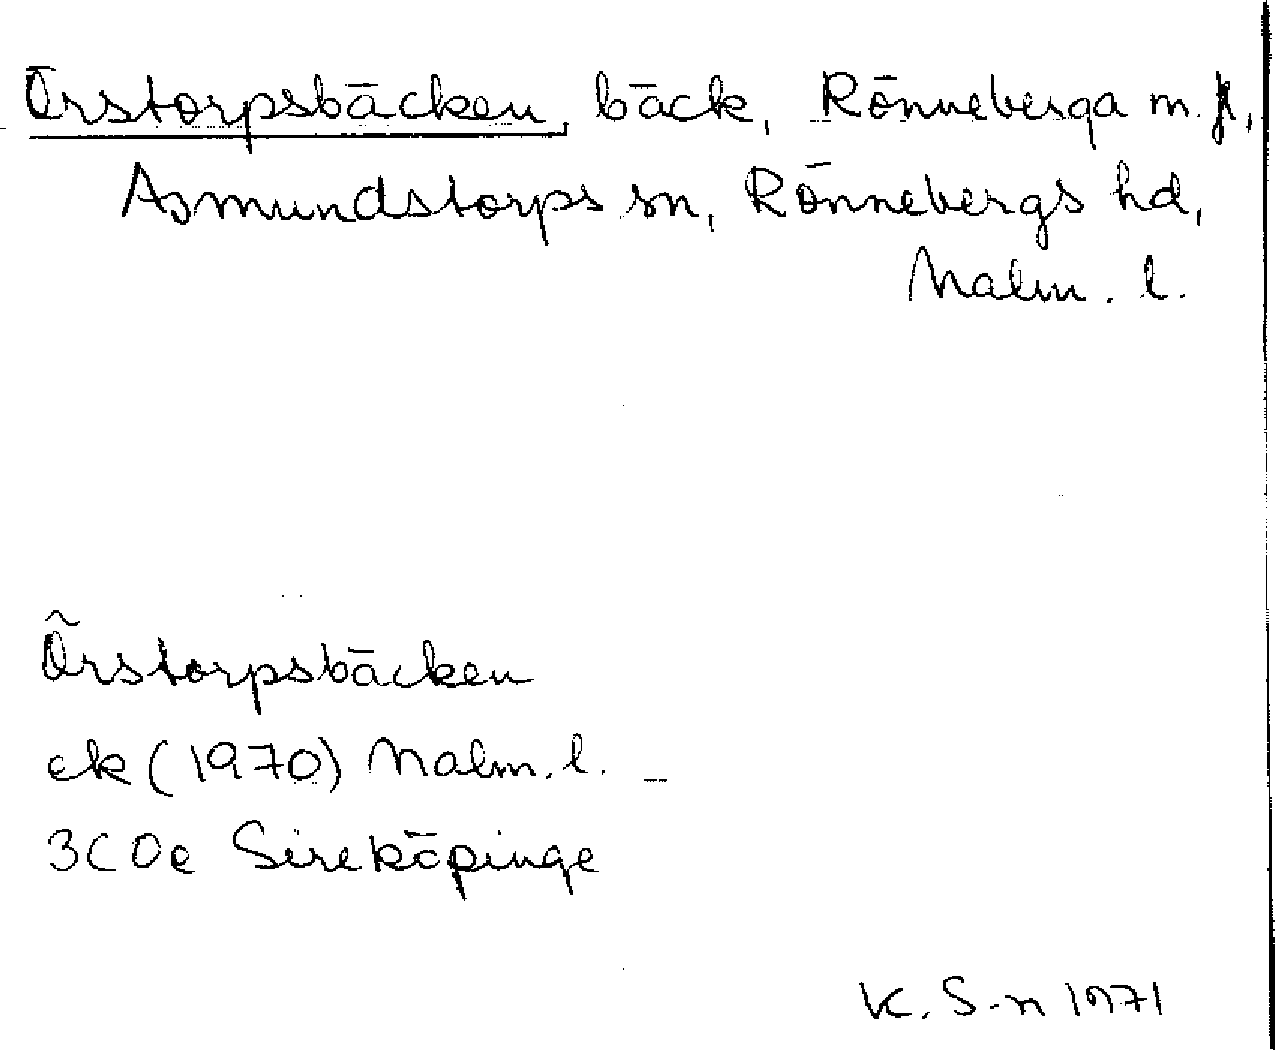 Örstorpsbäcken, bäck, Rönneberga m. fl,
Asmundstorps sn, Rönnebergs hd,
Malm. l.
Örstorpsbäcken
ek (1970) Malm. l. –
3C0e Sireköpinge
K. S-n 1971